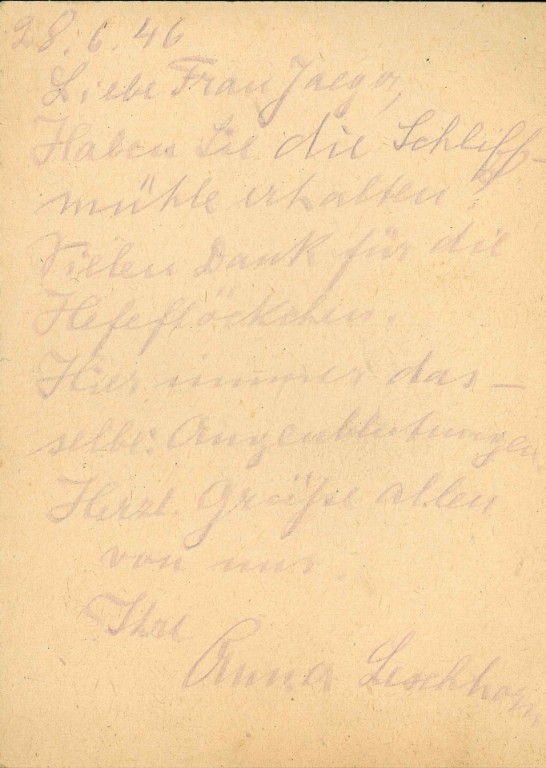 28. 6. 46
Liebe Frau Jaeger,
Haben Sie die Schliff-
mühle erhalten?
Vielen Dank für die
Hefeflöckchen.
Hier immer das-
selbe: Augenblutungen
Herzl. Grüße allen
von uns.
Ihre
Anna Leschhorn